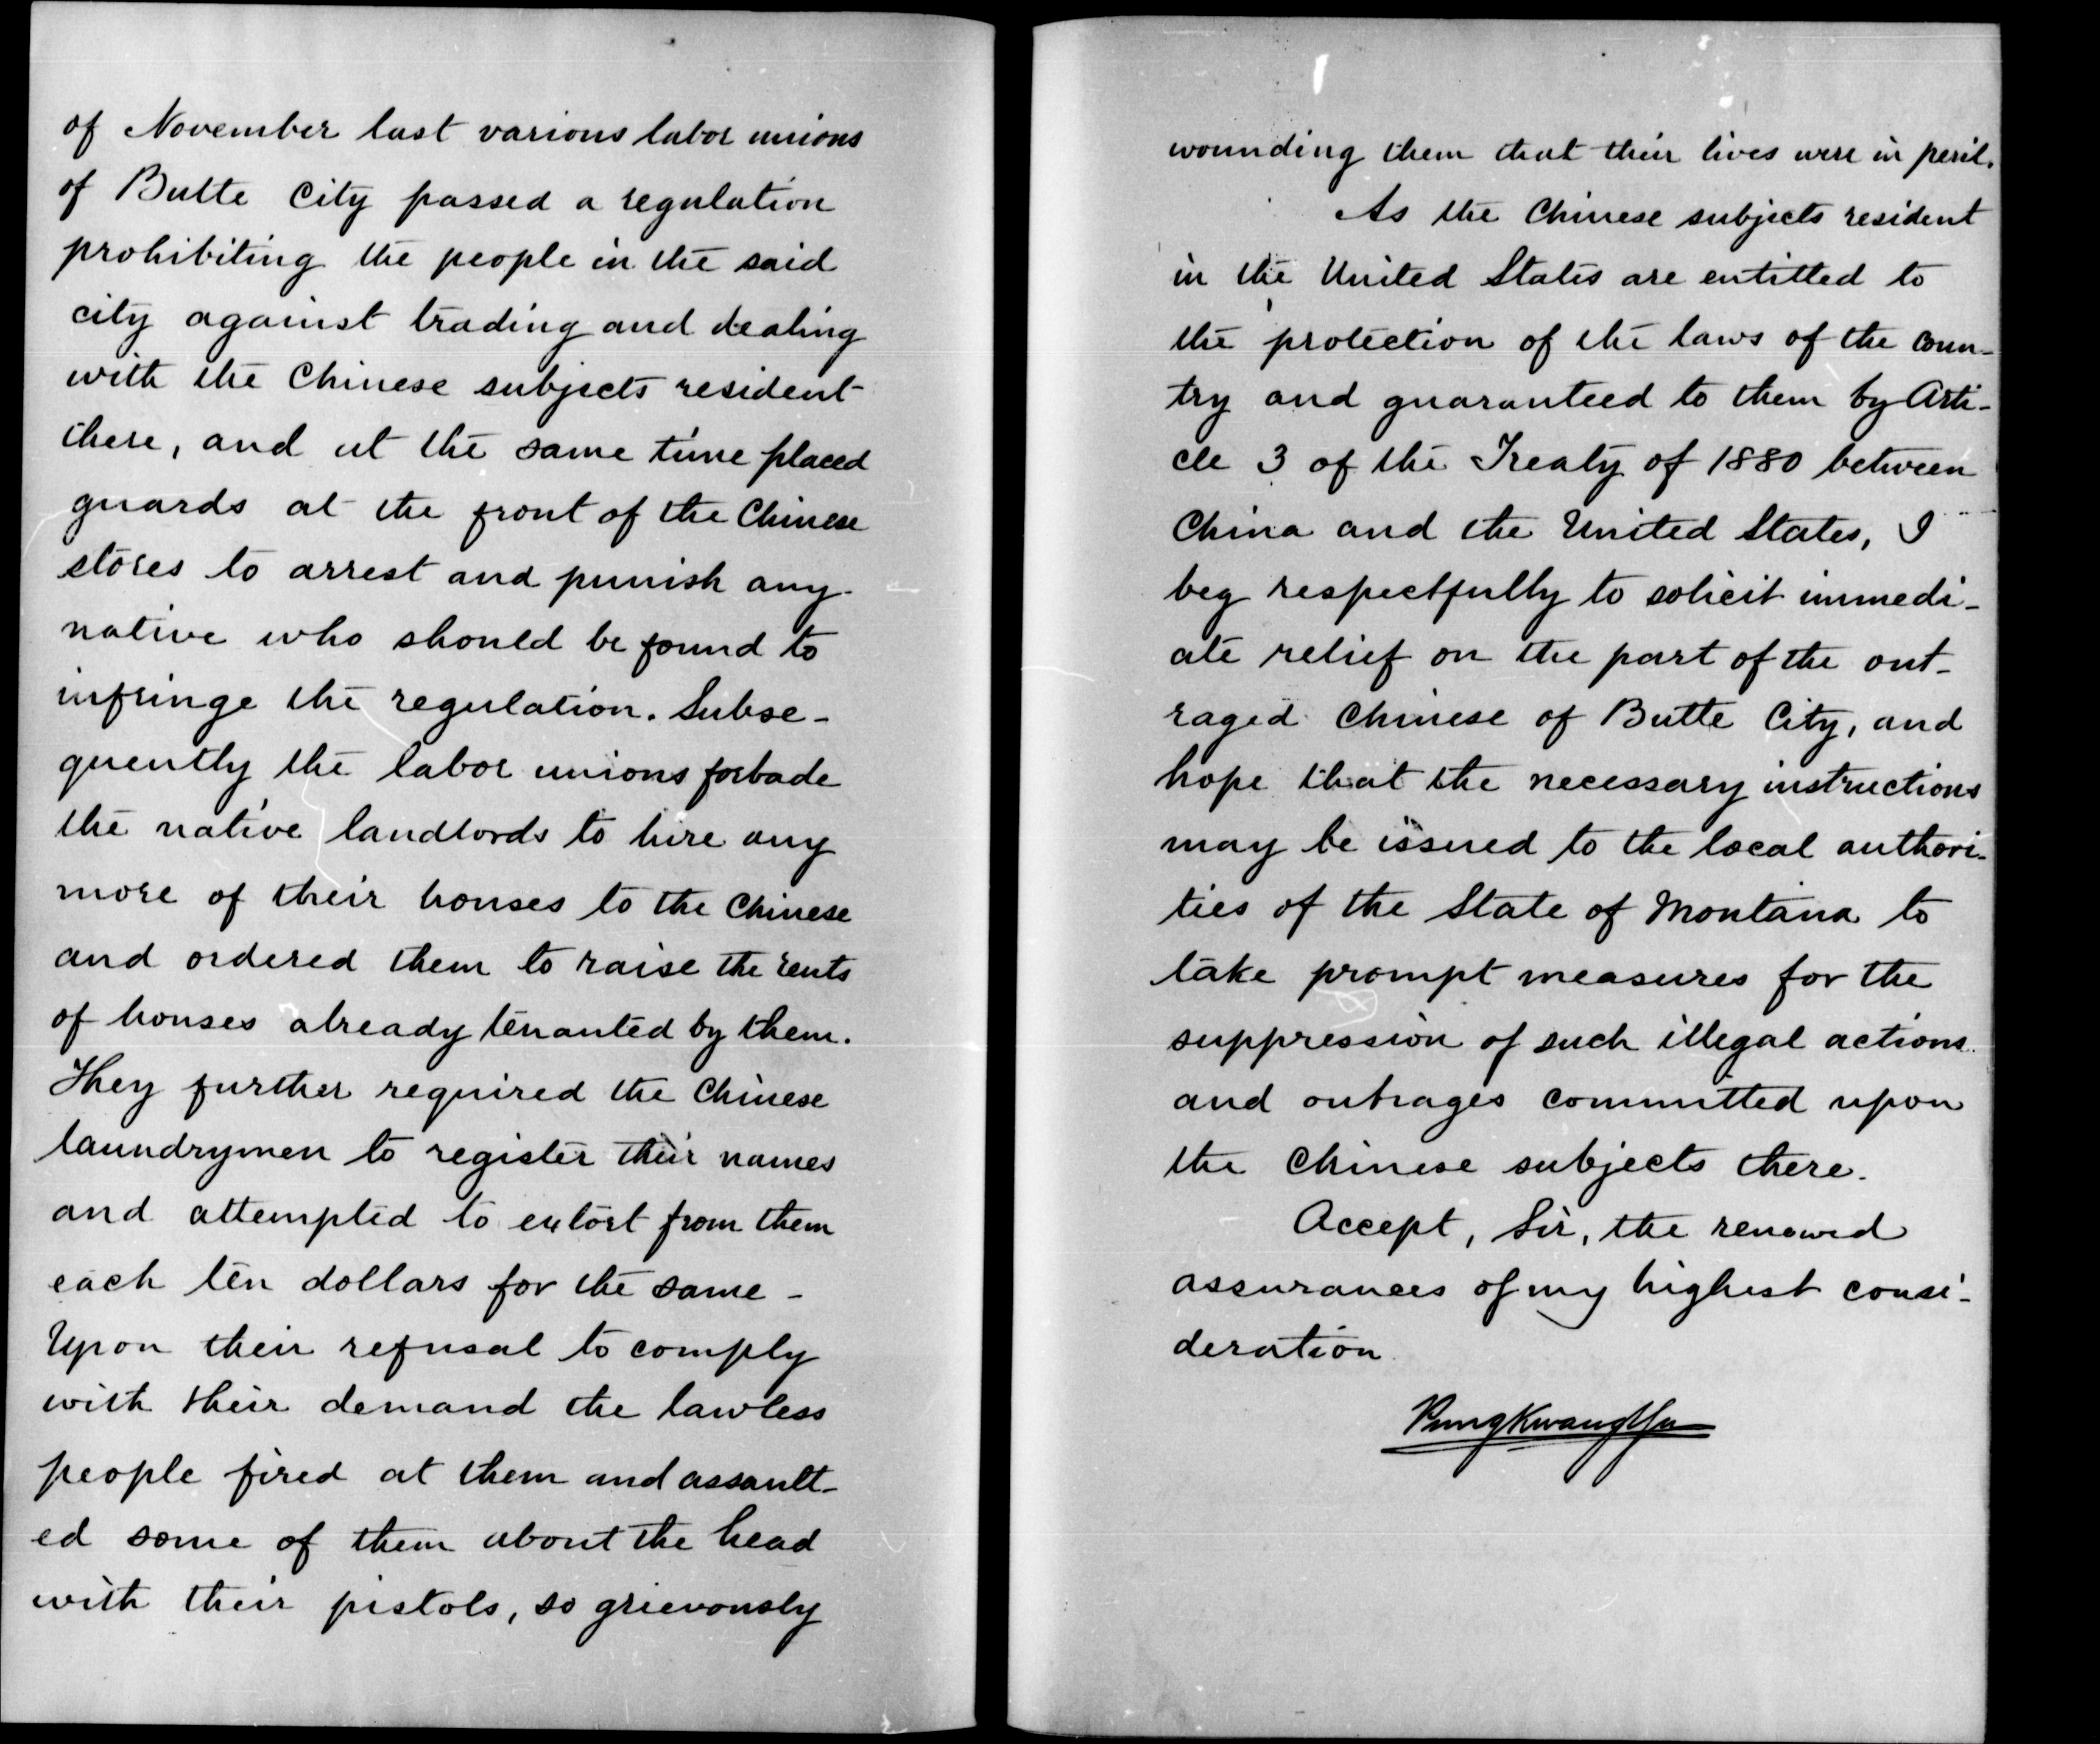 of November last various labor unions
of Butte City passed a regulation
prohibiting the people in the said
city against trading and dealing
with the Chinese subjects resident
there, and at the same time placed
guards at the front of the Chinese
stores to arrest and punish any
native who should be found to
infringe the regulation. Subse-
quently the labor unions forbade
the native landlords to hire any
more of their houses to the Chinese
and ordered them to raise the rents
of houses already tenanted by them.
They further required the Chinese
laundrymen to register their names
and attempted to extort from them
each ten dollars for the same -
Upon their refusal to comply
with their demand the lawless
people fired at them and assault-
ed some of them about the head
with their pistols, so grievously
wounding them that their lives were in peril.
As the Chinese subjects resident
in the United States are entitled to
the protection of the laws of the coun-
try and guaranteed to them by Arti-
cle 3 of the Treaty of 1880 between
China and the United States, I
beg respectfully to solicit immedi-
ate relief on the part of the out-
raged Chinese of Butte City, and
hope that the necessary instructions
may be issued to the local authori-
ties of the State of Montana to
take prompt measures for the
suppression of such illegal actions
and outrages committed upon
the Chinese subjects there.
Accept, Sir, the renewed
assurances of my highest consi-
deration.
Pung Kwang Yu